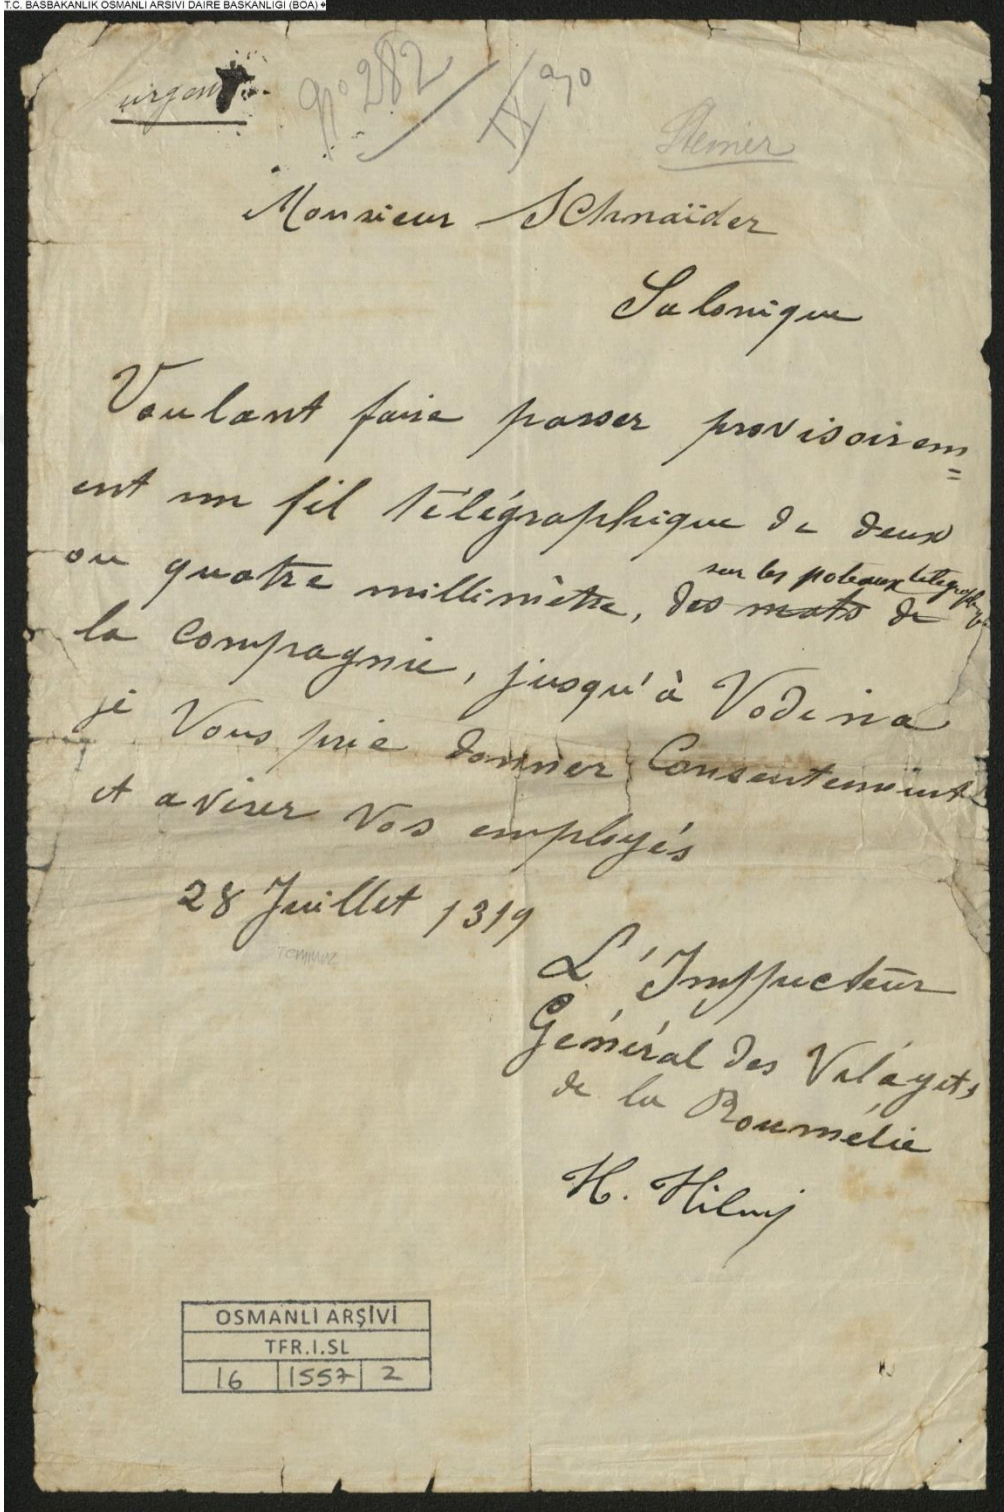 T.C. BASBAKANLIK OSMANLI ARSIVI DAIRE BASKANLIGI (BOA)
urgent
No 282
Steiner
Monsieur Schnaïder
Salonique
Voulant faire passer provisoirem=
ent un fil télégraphique de deux
sur les poteaux télégraphiques
ou quatre millimètre, des mats de
la Compagnie, jusqu'à Vodina
je Vous prie donner Consentement
et aviser vos employés
28 Juillet 1319
L'Inspecteur
Général des Vilayets
de la Roumélie
H. Hilmi
OSMANLI ARŞİVİ
TFR.I.SL
16 1557 2